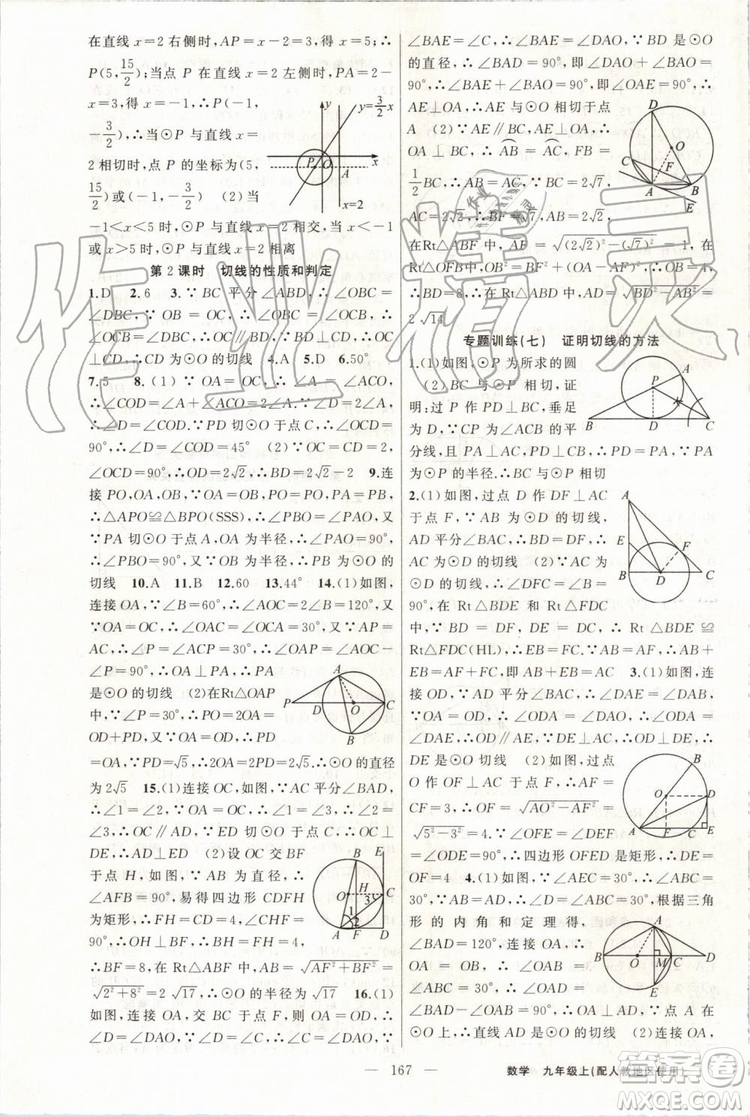 在直线 x=2 右侧时,AP=x-2=3,∴x=5;∴
P(5,15/2);当点 P 在直线 x=2 左侧时,PA=2-
x=3,得 x=-1,∴P(-1,
-3/2),∴当⊙P 与直线 x=
2 相切时,点 P 的坐标为(5,
15/2)或(-1,-3/2) (2)当
-1<x<5 时,⊙P 与直线 x=2 相交,当 x<-1
或 x>5 时,⊙P 与直线 x=2 相离
y
y=3/2 x
P
O
A
x
x=2
第 2 课时 切线的性质和判定
1.D 2.6 3.∵BC 平分∠ABD,∴∠OBC=
∠DBC,∵OB=OC,∴∠OBC=∠OCB,
∴∠DBC=∠OCB,∴OC∥BD,∵BD⊥CD,∴OC⊥
CD,∴CD 为⊙O 的切线 4.A 5.D 6.50°
7.5 8.(1)∵OA=OC,∴∠A=∠ACO,
∴∠COD=∠A+∠ACO=2∠A,∵∠D=2∠A,
∴∠D=∠COD,∵PD 切⊙O 于点 C,∴∠OCD=
90°,∴∠D=∠COD=45° (2)∵∠D=∠COD,
∠OCD=90°,∴OD=2√2,∴BD=2√2-2 9.连
接 PO,OA,OB,∵PA=PB,OA=OB,PO=PO,
∴△APO≌△BPO(SSS),∴∠PBO=∠PAO,又∵
PA 切⊙O 于点 A,∴∠PAO=90°,∴∠PBO=
90°,∴OB⊥PB,又∵OB 为⊙O 半径,∴PB 是⊙O 的
切线 10.A 11.B 12.60 13.44° 14.(1)如图,
连接 OA,∵∠B=60°,∴∠AOC=2∠B=120°,又
∵OA=OC,∴∠OAC=∠OCA=30°,又∵AP=
AC,∴∠P=∠ACP=30°,∴∠OAP=∠AOC-
∠P=90°,∴OA⊥PA,∴PA
是⊙O的切线 (2)在Rt△OAP
中,∵∠P=30°,∴PO=2OA=
OD+PD,又∵OA=OD,
∴PD=OA,∵PD=√5,
∴2OA=2PD=2√5,∴⊙O 的直径
A
P D O C
B
为 2√5 15.(1)连接 OC,如图,∵AC平分∠BAD,
∴∠1=∠2,∵OA=OC,∴∠1=∠3,∴∠2=∠3,
∴OC∥AD,∵ED 切⊙O于点 C,∴OC⊥DE,
∴AD⊥ED (2)设 OC 交 BF
于点 H,如图,∵AB 为直径,∴
∠AFB=90°,易得四边形 CDFH
为矩形,∴FH=CD=4,∠CHF
=90°,∴OH⊥BF,∴BH=FH=4,
∴BF=8,在 Rt△ABF 中,AB=√(AF²+BF²)=
√(2²+8²)=2√17,∴⊙O 的半径为√17 16.(1)
如图,连接 OA,交 BC 于F,则 OA=OD,∴∠D=
∠DAO,∵∠D=∠C,∴∠C=∠DAO,∵
B E
H
O C
3
1
2
A F D
∠BAE=∠C,∴∠BAE=∠DAO,∵BD 是⊙O
的直径,∴∠BAD=90°,即∠DAO+∠BAO=
90°,∴∠BAE+∠BAO=90°,即∠OAE=90°,∴
AE⊥OA,∴AE 与⊙O相切于点
A (2)∵AE∥BC,AE⊥OA,∴
OA⊥BC,∴AB=AC,FB=
1/2 BC,∴AB=AC,∵BC=2√7,
AC=2√2,∴BF=√7,AB=2√2,
在Rt△ABF 中,AF=√((2√2)²-(√7)²)=1,
在Rt△OFB 中,OB²=BF²+(OB-AF)²,∴OB=4,∴BD=8,∴在Rt△ABD 中,AD=√(BD²-AB²)=√(64-8)=√56=
2√14
D
O
C F
A B
E
专题训练(七) 证明切线的方法
1.(1)如图,⊙P 为所求的圆
(2)BC 与⊙P 相切,证
明:过 P 作 PD⊥BC,垂足
为 D,∵CP 为∠ACB 的平
分线,且 PA⊥AC,PD⊥CB,∴PD=PA,∵PA
为⊙P 的半径,∴BC 与⊙P 相切
A
P
B D C
2.(1)如图,过点 D 作 DF⊥AC
于点 F,∵AB 为⊙D 的切线,
AD 平分∠BAC,∴BD=DF,∴
AC 为⊙D 的切线 (2)∵AC
为⊙D 的切线,∴∠DFC=∠B=
90°,在 Rt△BDE 和 Rt△FDC
中,∵BD=DF,DE=DC,∴Rt△BDE≌
Rt△FDC(HL),∴EB=FC,∵AB=AF,∴AB+
EB=AF+FC,即AB+EB=AC 3.(1)如图,连
接 OD,∵AD 平分∠BAC,∴∠DAE=∠DAB,
∵OA=OD,∴∠ODA=∠DAO,∴∠ODA=
∠DAE,∴OD∥AE,∵DE⊥AC,∴OD⊥DE,∴
DE 是⊙O切线 (2)如图,过点
O 作 OF⊥AC 于点 F,∴AF=
CF=3,∴OF=√(AO²-AF²)=
√(5²-3²)=4,∵∠OFE=∠DEF
=∠ODE=90°,∴四边形 OFED 是矩形,∴DE=
OF=4 4.(1)连接 OA,∵∠B=∠C=30°,根据三角
A
E
F
B D C
B
O D
A F C E
形 的 内 角 和 定 理 得,
∠BAC=120°,连接 OA,∵
OA=OC,∴∠OAC=∠OCA
=60°,∴∠BAO=120°-60°=
90°,∴OA⊥BA,∵点 A 在
⊙O 上,∴直线 AB 是⊙O 的切线 (2)连接 OA,
A
B O M C D
E
— 167 —
数学 九年级上(配人教地区使用)
作业精灵